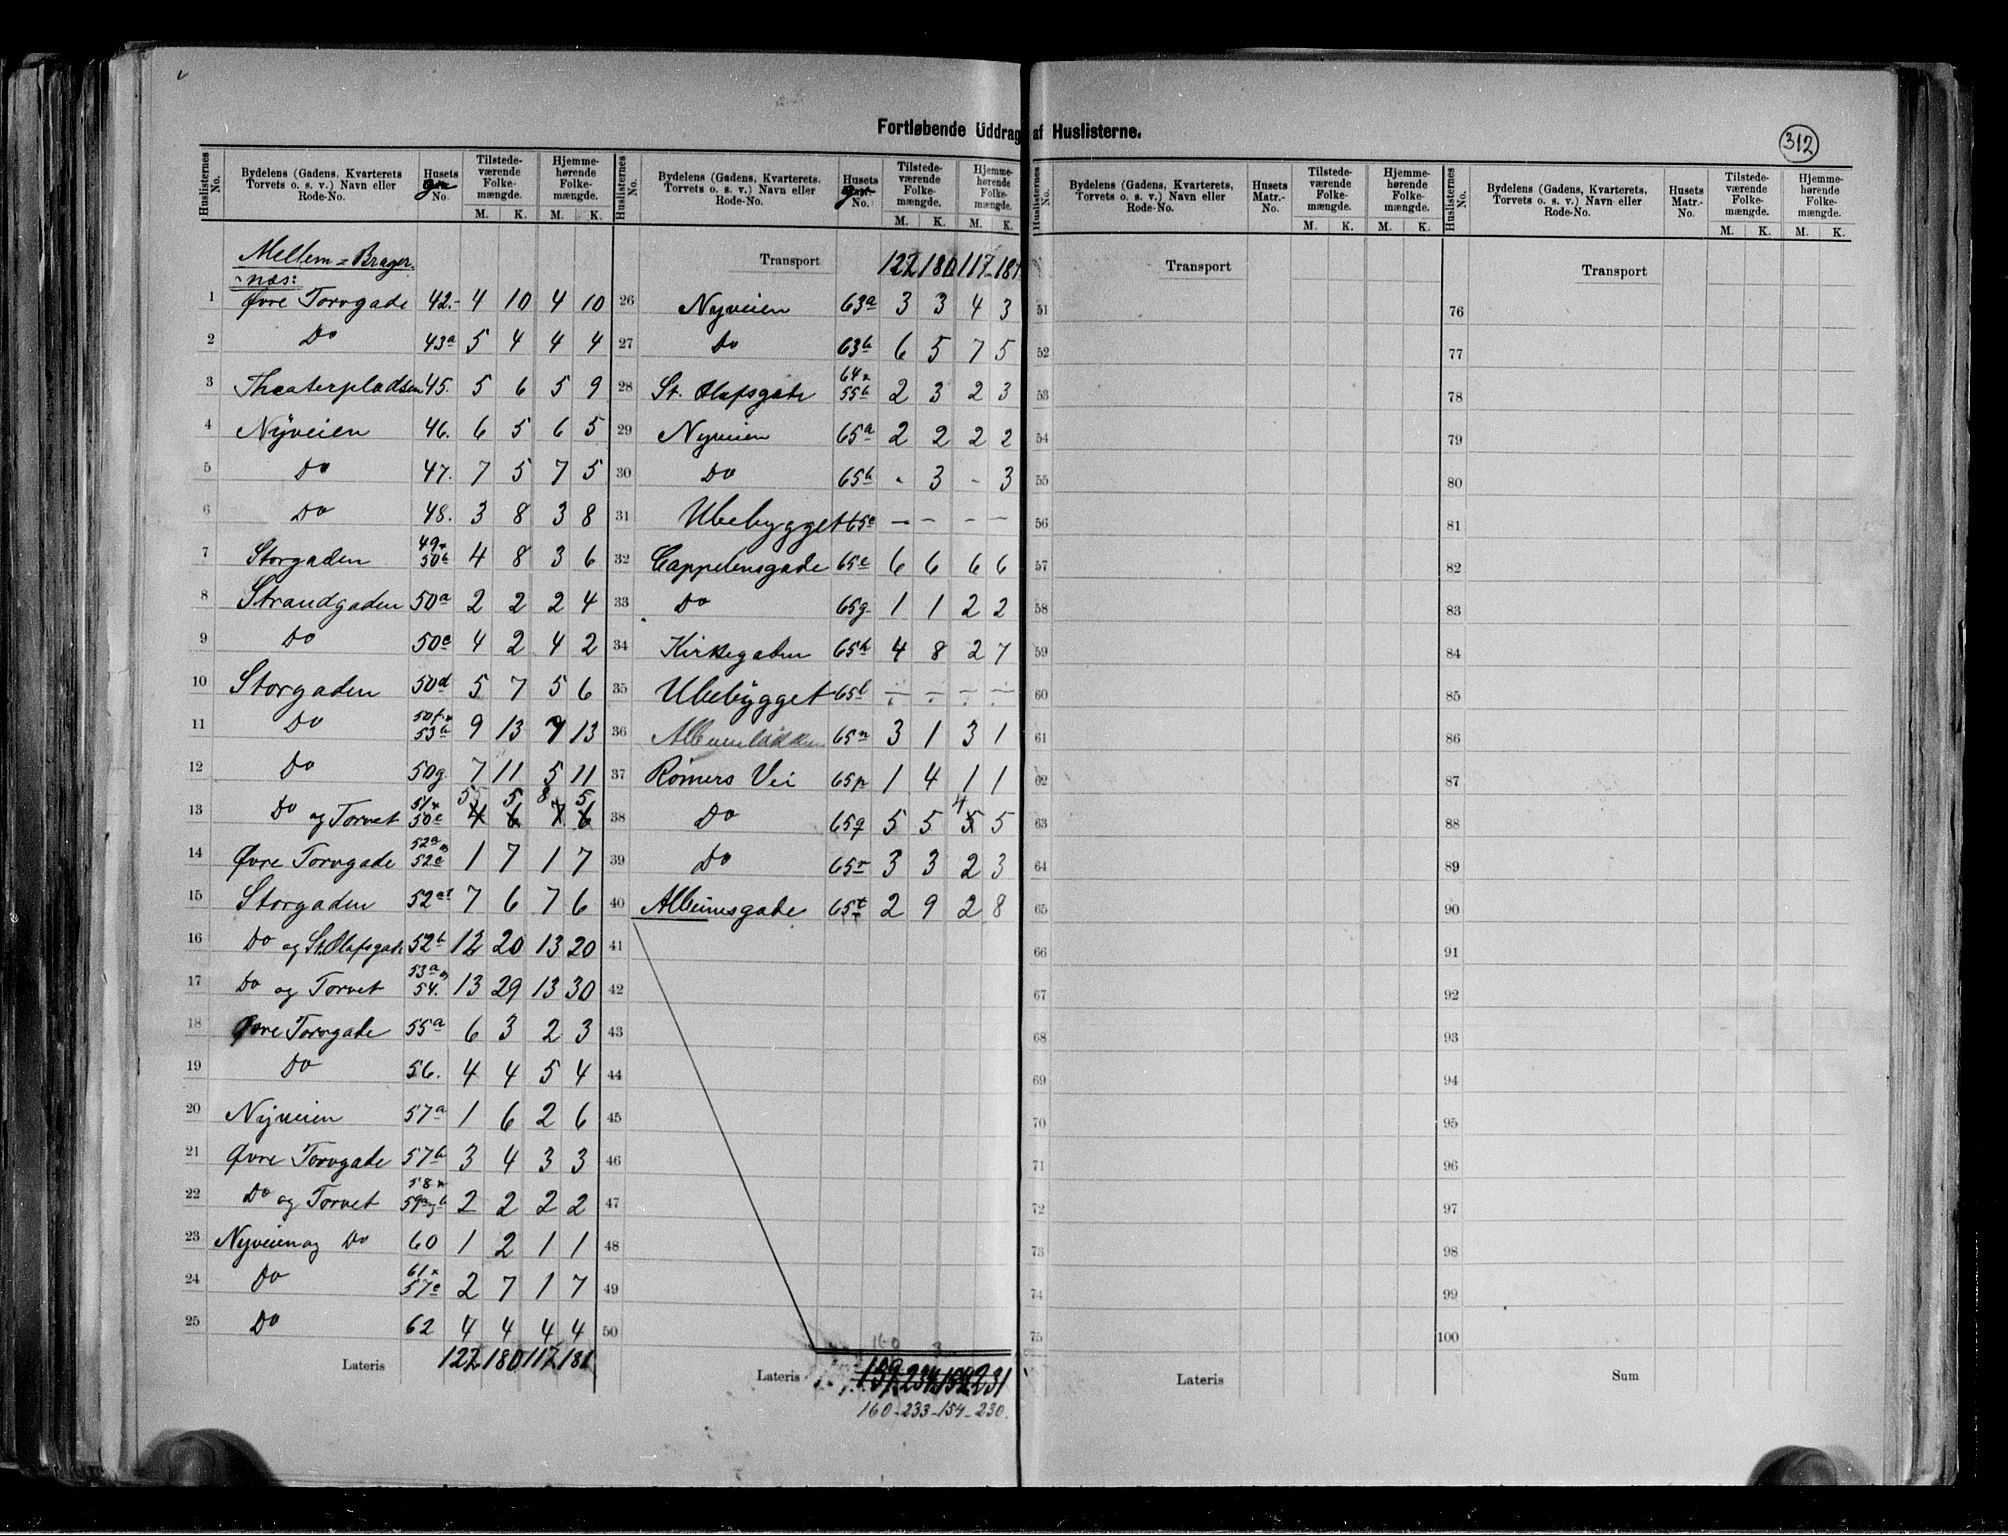 Fortløbende Uddrag af Huslisterne.
312
Huslisternes No. | Bydelens (Gadens, Kvarterets, Torvets o. s. v.) Navn eller Rode-No. | Husets No. | Tilstedeværende Folkemængde. M. K. | Hjemmehørende Folkemængde. M. K.
Mellem=Bragernæs:
1 Øvre Torvgade 42. 4 10 4 10
2 Do 43a 5 4 4 4
3 Theaterpladsen 45. 5 6 5 9
4 Nyveien 46. 6 5 6 5
5 Do 47. 7 5 7 5
6 Do 48. 3 8 3 8
7 Storgaden 49x 50b 4 8 3 6
8 Strandgaden 50a 2 2 2 4
9 Do 50c 4 2 4 2
10 Storgaden 50d 5 7 5 6
11 Do 50f x 53b 9 13 9 13
12 Do 50g 7 11 5 11
13 Do og Torvet 51x 50e 5 5 8 5
14 Øvre Torvgade 52a 52c 1 7 1 7
15 Storgaden 7 6 7 6
16 Do og St. Olafsgade 52b 12 20 13 20
17 Do og Torvet 53a 54. 13 29 13 30
18 Øvre Torvgade 55a 6 3 2 3
19 Do 56. 4 4 5 4
20 Nyveien 57a 1 6 2 6
21 Øvre Torvgade 57b 3 4 3 3
22 Do og Torvet 58x 59a b 2 2 2 2
23 Nyveien og Do 60 1 2 1 1
24 Do 61x 57c 2 7 1 7
25 Do 62 4 4 4 4
Lateris 122 180 117 181
Huslisternes No. | Bydelens (Gadens, Kvarterets, Torvets o. s. v.) Navn eller Rode-No. | Husets No. | Tilstedeværende Folkemængde. M. K. | Hjemmehørende Folkemængde. M. K.
Transport 122 180 117 181
26 Nyveien 63a 3 3 4 3
27 Do 63b 6 5 7 5
28 St. Olafsgade 64x 55b 2 3 2 3
29 Nyveien 65a 2 2 2 2
30 Do 65b - 3 - 3
31 Ubebygget 65c — — — —
32 Cappelensgade 65e 6 6 6 6
33 Do 65g 1 1 2 2
34 Kirkegaden 65h 4 8 2 7
35 Ubebygget 65l — — — —
36 Albumløkken 65n 3 1 3 1
37 Rømers Vei 65p 1 4 1 1
38 Do 65q 5 5 4 5
39 Do 65r 3 3 2 3
40 Albumsgade 65t 2 9 2 8
41
42
43
44
45
46
47
48
49
50
160 3
Lateris 159 234 154 231
160-233-154-230.
Huslisternes No. | Bydelens (Gadens, Kvarterets, Torvets o. s. v.) Navn eller Rode-No. | Husets Matr.-No. | Tilstedeværende Folkemængde. M. K. | Hjemmehørende Folkemængde. M. K.
Transport
51
52
53
54
55
56
57
58
59
60
61
62
63
64
65
66
67
68
69
70
71
72
73
74
75
Lateris
Huslisternes No. | Bydelens (Gadens, Kvarterets, Torvets o. s. v.) Navn eller Rode-No. | Husets Matr.-No. | Tilstedeværende Folkemængde. M. K. | Hjemmehørende Folkemængde. M. K.
Transport
76
77
78
79
80
81
82
83
84
85
86
87
88
89
90
91
92
93
94
95
96
97
98
99
100
Sum